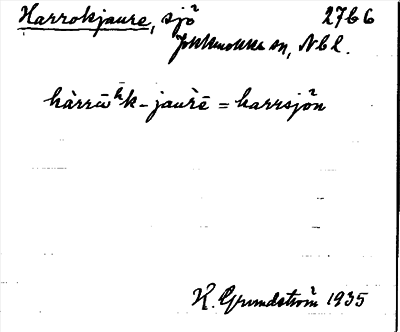 Harrokjaure, sjö 27 b 6
Jokkmokks sn, Nbl.
hàrrūʰk-jaurē = harrsjön
H. Grundström 1935